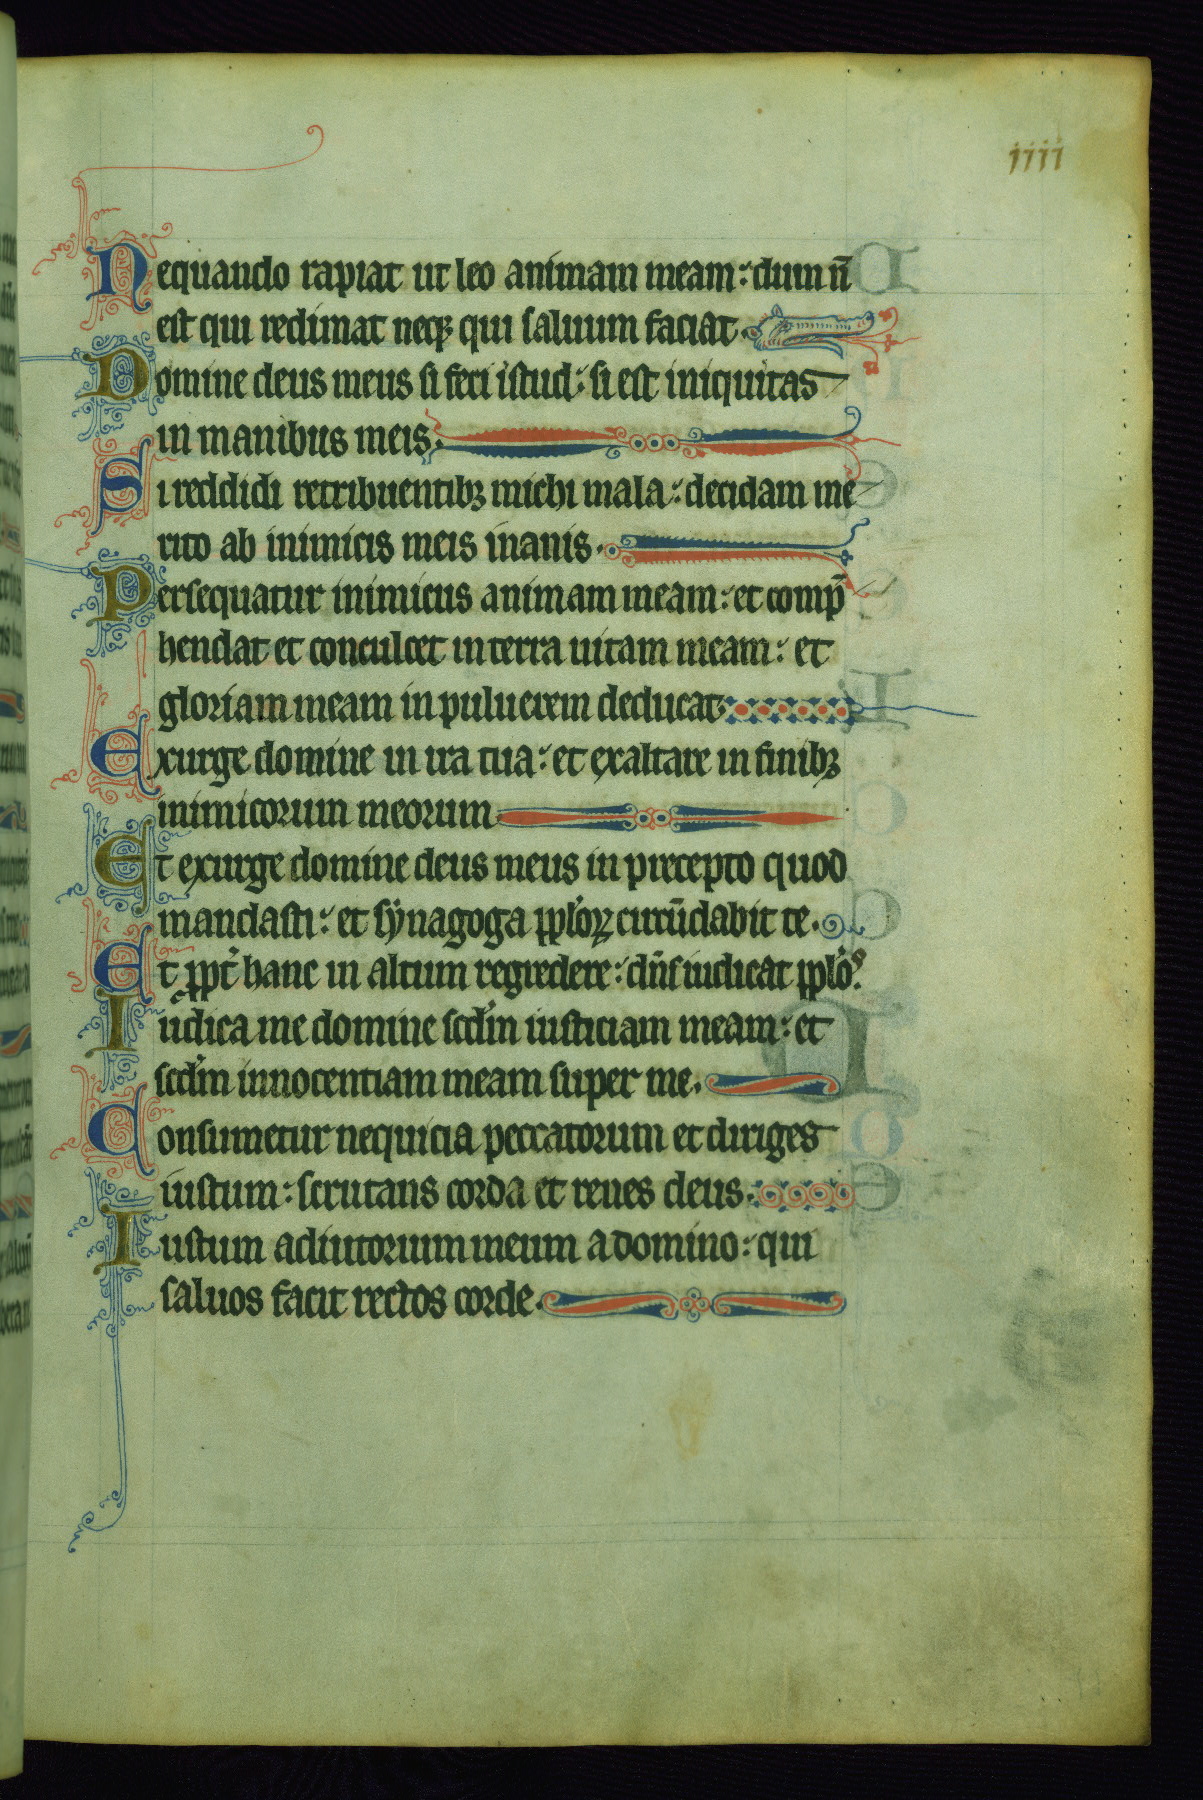 iiii
Nequando rapiat ut leo animam meam: dum n̄
est qui redimat neqꝫ qui saluum faciat.
Domine deus meus si feci istud: si est iniquitas
in manibus meis.
Si reddidi retribuentibꝫ michi mala: decidam me
rito ab inimicis meis inanis.
Persequatur inimicus animam meam: et comp̄
hendat et conculcet in terra uitam meam: et
gloriam meam in puluerem deducat
Exurge domine in ira tua: et exaltare in finibꝫ
inimicorum meorum
Et exurge domine deus meus in precepto quod
mandasti: et synagoga pploꝝ circūdabit te.
Et ppt̄ hanc in altum regredere: dn̄s iudicat pplos.
Iudica me domine scdm̄ iusticiam meam: et
scdm̄ innocentiam meam super me.
Consumetur nequicia peccatorum et diriges
iustum: scrutans corda et renes deus.
Iustum adiutorium meum a domino: qui
saluos facit rectos corde.